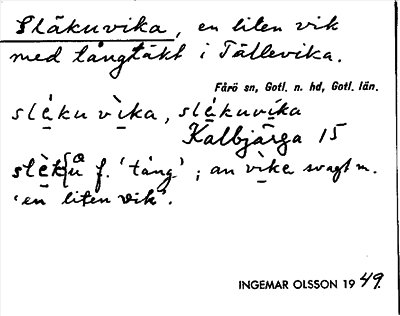 Släkuvika, en liten vik
med tångtäkt i Tällevika.
Fårö sn, Gotl. n. hd, Gotl. län.
slẹ̀ku vị̀ka, slẹ̀kuvịka
Kalbjärga 15
slẹ̀k{å̊u f. 'tång'; an vị̀ke svagt m.
'en liten vik'.
INGEMAR OLSSON 1949.